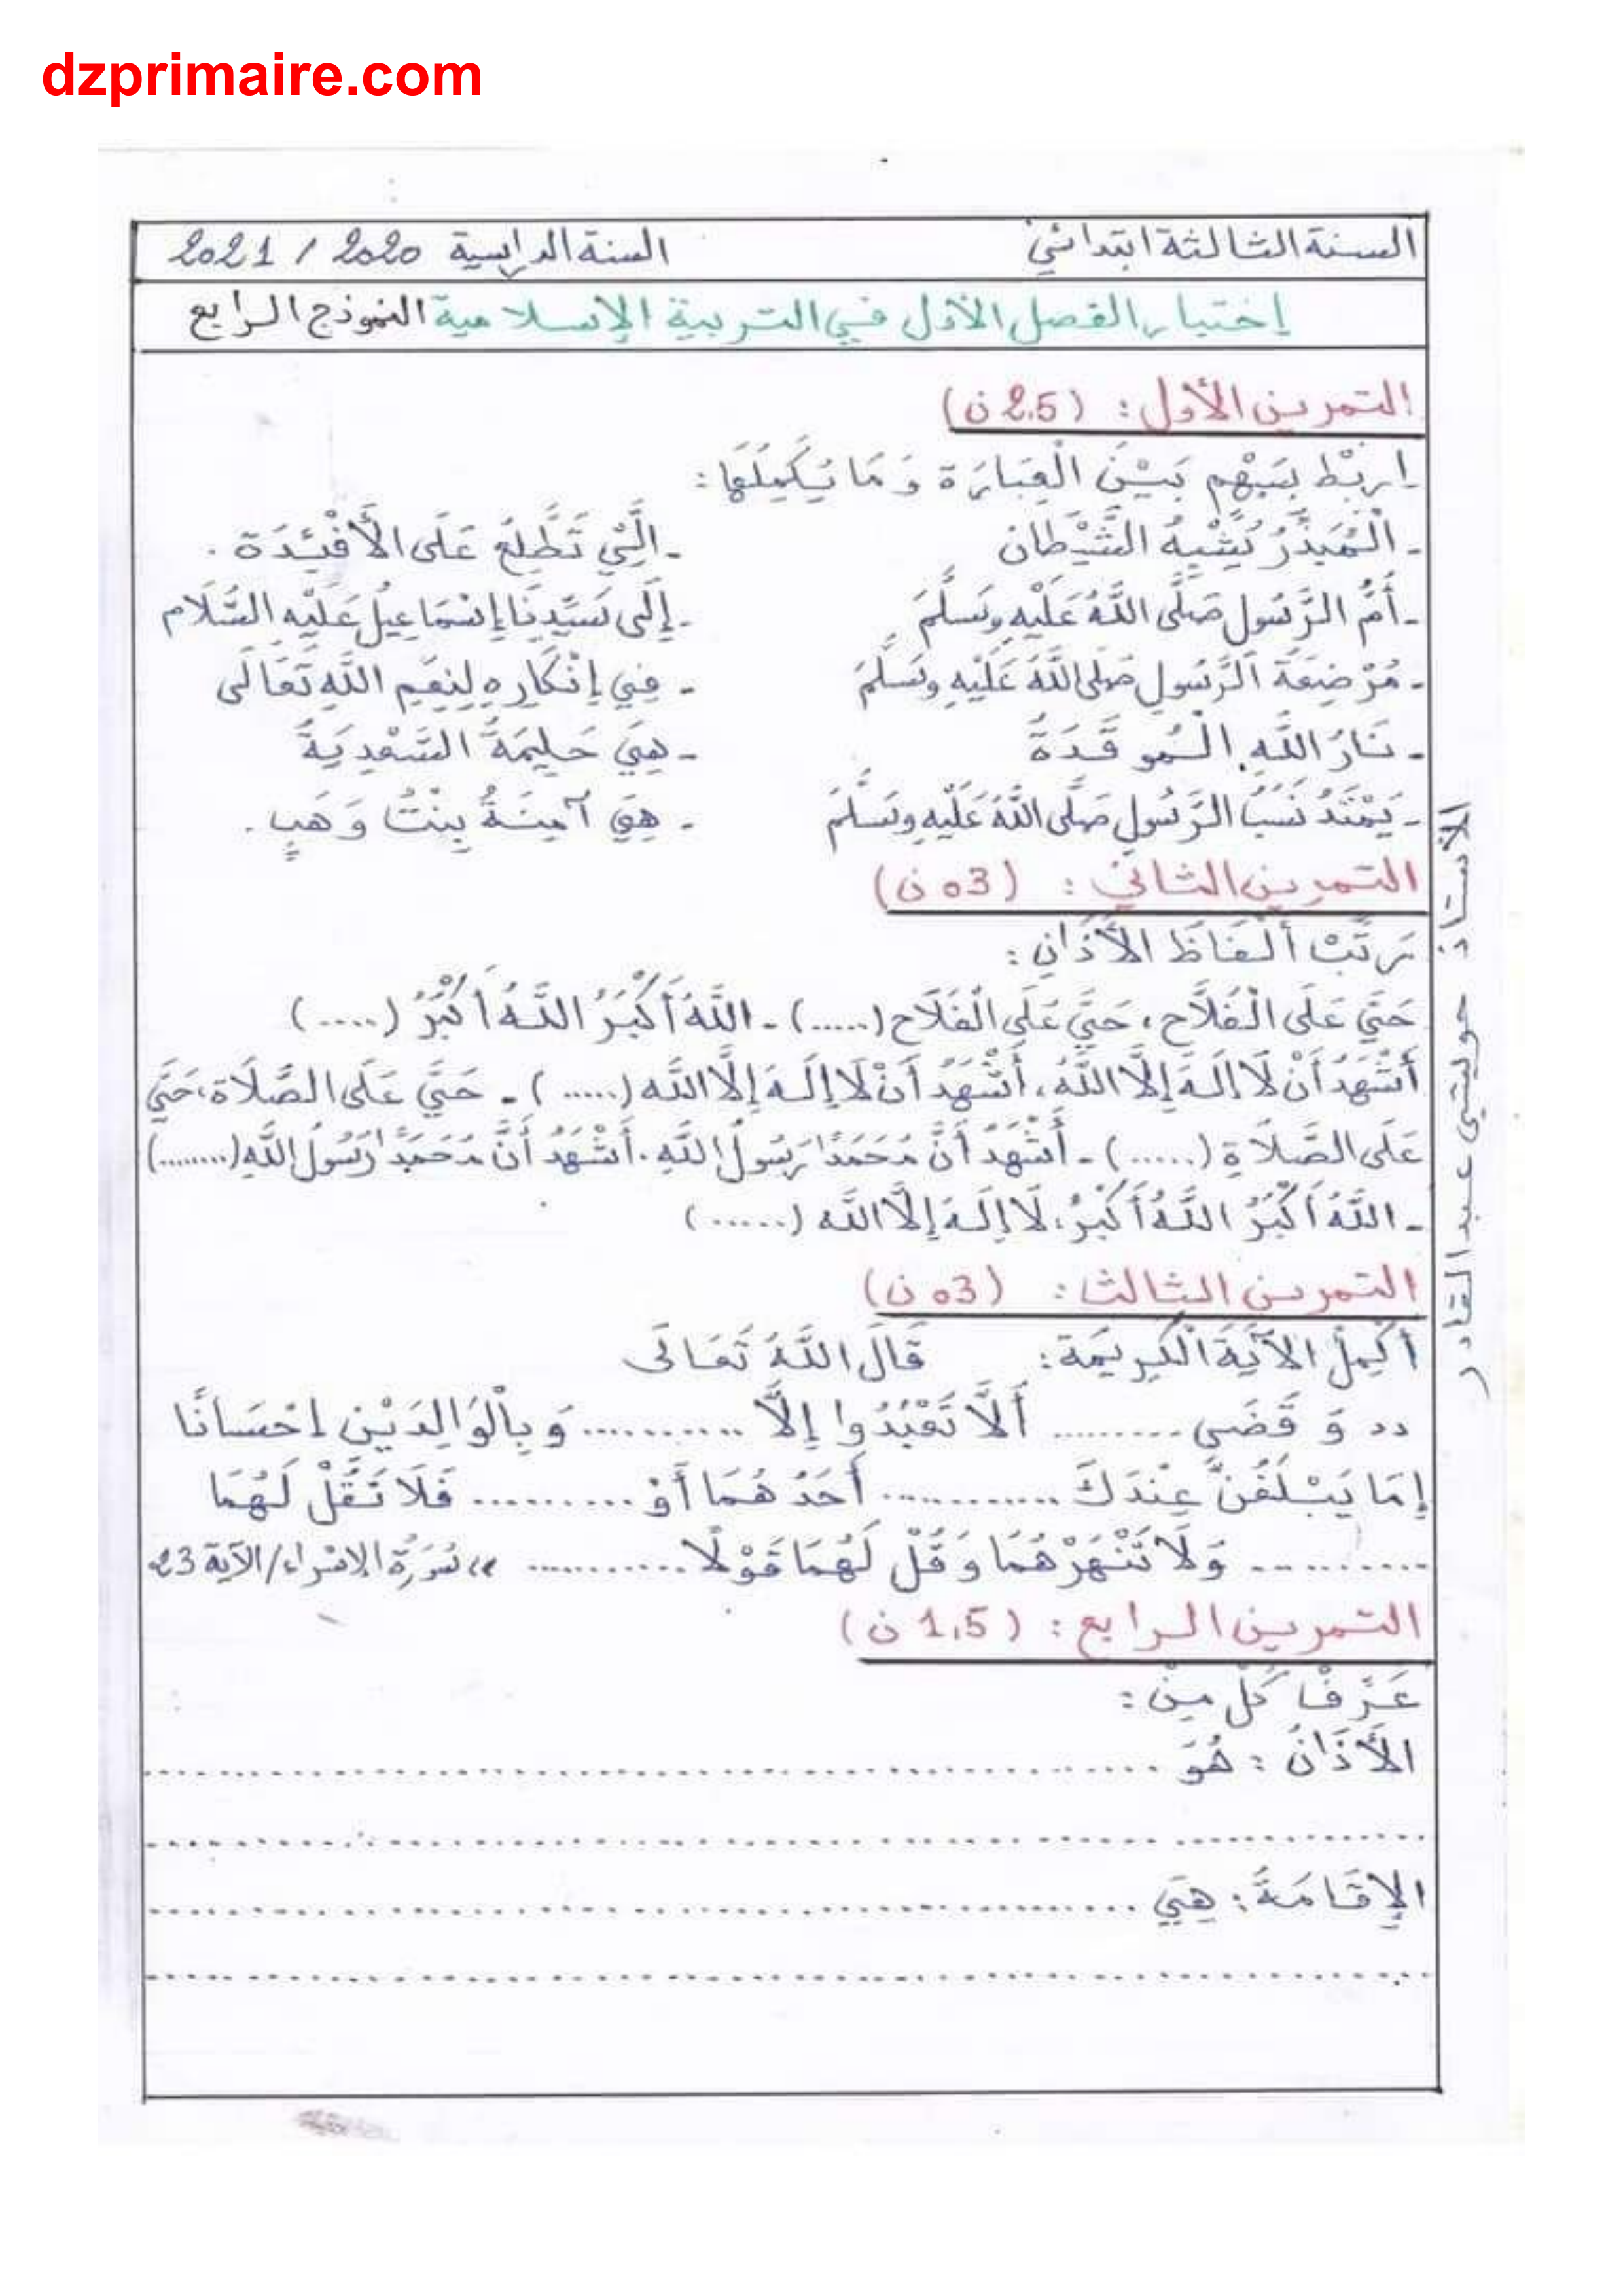 dzprimaire.com
السنة الثالثة ابتدائي السنة الدراسية 2020 / 2021
إختبار الفصل الأول في التربية الإسلامية النموذج الرابع
التمرين الأول: (2.5 ن)
اربْط بِسَهْمٍ بَيْنَ الْعِبَارَة وَمَا يُكَمِلُهَا:
- الْمُبَذِّرُ يُشْبِهُ الشَّيْطان - الَّتِي تَطَّلِعُ عَلَى الأَفْئِدَة.
- أُمُّ الرَّسُول صَلَّى اللَّهُ عَلَيْهِ وسَلَّمَ - إِلَى سَيِّدِنَا إِسْمَاعِيلَ عَلَيْهِ السَّلَام
- مُرْضِعَةُ الرَّسُولِ صَلَّى اللَّهُ عَلَيْهِ وسَلَّمَ - فِي إِنْكَارِهِ لِنِعَمِ اللَّهِ تَعَالَى
- نَارُ اللَّهِ الْمُوقَدَةُ - هِيَ حَلِيمَةُ السَّعْدِيَةُ
- يَمْتَدُ نَسَبُ الرَّسُولِ صَلَّى اللَّهُ عَلَيْهِ وسَلَّمَ - هِيَ آمِنَةُ بِنْتُ وَهَبٍ.
التمرين الثاني: (03 ن)
رَتِّبْ أَلْفَاظَ الأَذَانِ:
حَيَّ عَلَى الْفَلَاَح، حَيَّ عَلَى الْفَلَاَح (.....) - اللَّهُ أَكْبَرُ اللَّهُ أَكْبَرُ (.....)
أَشْهَدُ أَنْ لَا إِلَهَ إِلَّا اللَّهُ، أَشْهَدُ أَنْ لَا إِلَهَ إِلَّا اللَّه (.....) - حَيَّ عَلَى الصَّلَاة، حَيَّ
عَلَى الصَّلَاةِ (.....) - أَشْهَدُ أَنَّ مُحَمَدًا رَسُولُ اللَّهِ. أَشْهَدُ أَنَّ مُحَمَدًا رَسُولُ اللَّهِ (........)
- اللَّهُ أَكْبَرُ اللَّهُ أَكْبَرُ، لَا إِلَهَ إِلَّا اللَّه (......)
التمرين الثالث: (03 ن)
أَكْمِلْ الآيَةَ الْكَرِيمَة: قَالَ اللَّهُ تَعَالَى
« وَقَضَى ......... أَلَّا تَعْبُدُوا إِلَّا ........... وَبِالْوَالِدَيْنِ إحْسَانًا
إِمَا يَبْلُغَنَّ عِنْدَكَ ............ أَحَدُهُمَا أَوْ .......... فَلَا تَقُلْ لَهُمَا
........... وَلَا تَنْهَرْهُمَا وَقُلْ لَهُمَا قَوْلًا ........... » سُورَةُ الإسْرَاء/الآية 23
التمرين الرابع: (1.5 ن)
عَرِّفْ كُلّ مِنْ:
الأَذَانُ: هُوَ ..............................
..............................
الإِقَامَةُ: هِيَ ..............................
..............................
الأستاذ حوليتي عبد القادر